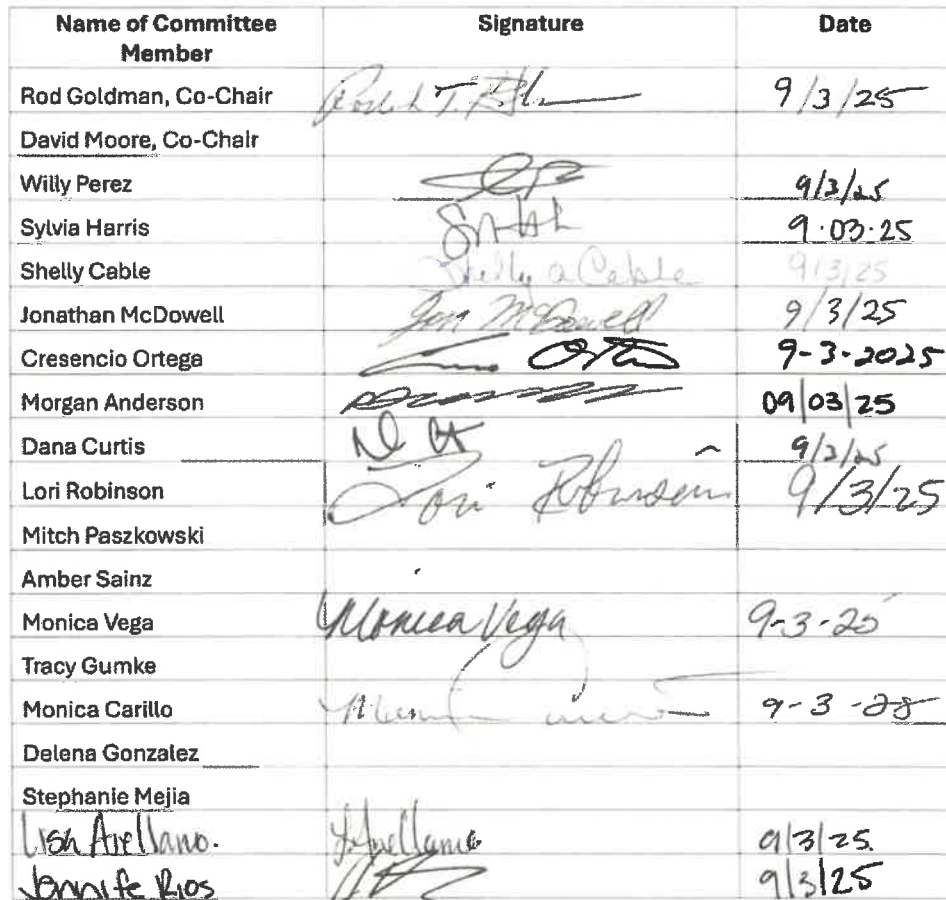 Name of Committee Member Signature Date
Rod Goldman, Co-Chair 9/3/25
David Moore, Co-Chair
Willy Perez 9/3/25
Sylvia Harris 9.03.25
Shelly Cable Shelly a Cable 9/3/25
Jonathan McDowell Jon McDowell 9/3/25
Cresencio Ortega 9-3-2025
Morgan Anderson 09/03/25
Dana Curtis
Lori Robinson Lori Robinson 9/3/25
Mitch Paszkowski
Amber Sainz
Monica Vega Monica Vega 9-3-25
Tracy Gumke
Monica Carillo 9-3-25
Delena Gonzalez
Stephanie Mejia
Lisa Arellano. LArellano 9/3/25.
Jennife Rios 9/3/25